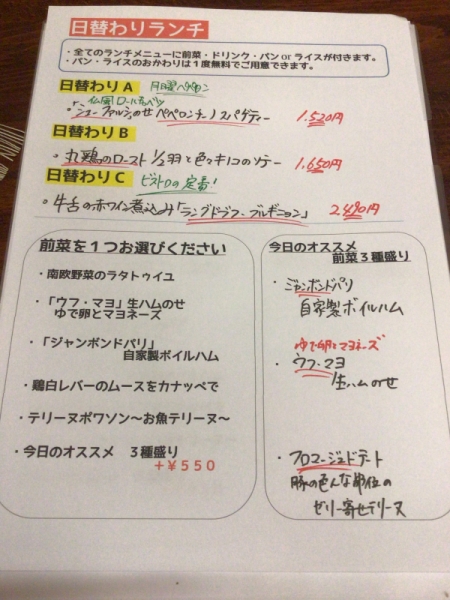 日替わりランチ
・全てのランチメニューに前菜・ドリンク・パンorライスが付きます。
・パン・ライスのおかわりは1度無料でご用意できます。
日替わりA
仏風ロールキャベツ
・「シューファルシ」のせペペロンチーノスパゲティー 1.520円
日替わりB
・丸鶏のロースト1/2羽と色々キノコのソテー 1.650円
日替わりC ビストロの定番!
・牛舌の赤ワイン煮込み「ラングドブフ・ブルギニョン」 2.490円
前菜を1つお選びください
・南欧野菜のラタトゥイユ
・「ウフ・マヨ」生ハムのせ
ゆで卵とマヨネーズ
・「ジャンボンドパリ」
自家製ボイルハム
・鶏白レバーのムースをカナッペで
・テリーヌポワソン〜お魚テリーヌ〜
・今日のオススメ 3種盛り
+¥550
今日のオススメ
前菜3種盛り
・ジャンボンドパリ
自家製ボイルハム
ゆで卵とマヨネーズ
・ウフ・マヨ
生ハムのせ
・フロマージュドテート
豚の色んな部位の
ゼリー寄せテリーヌ